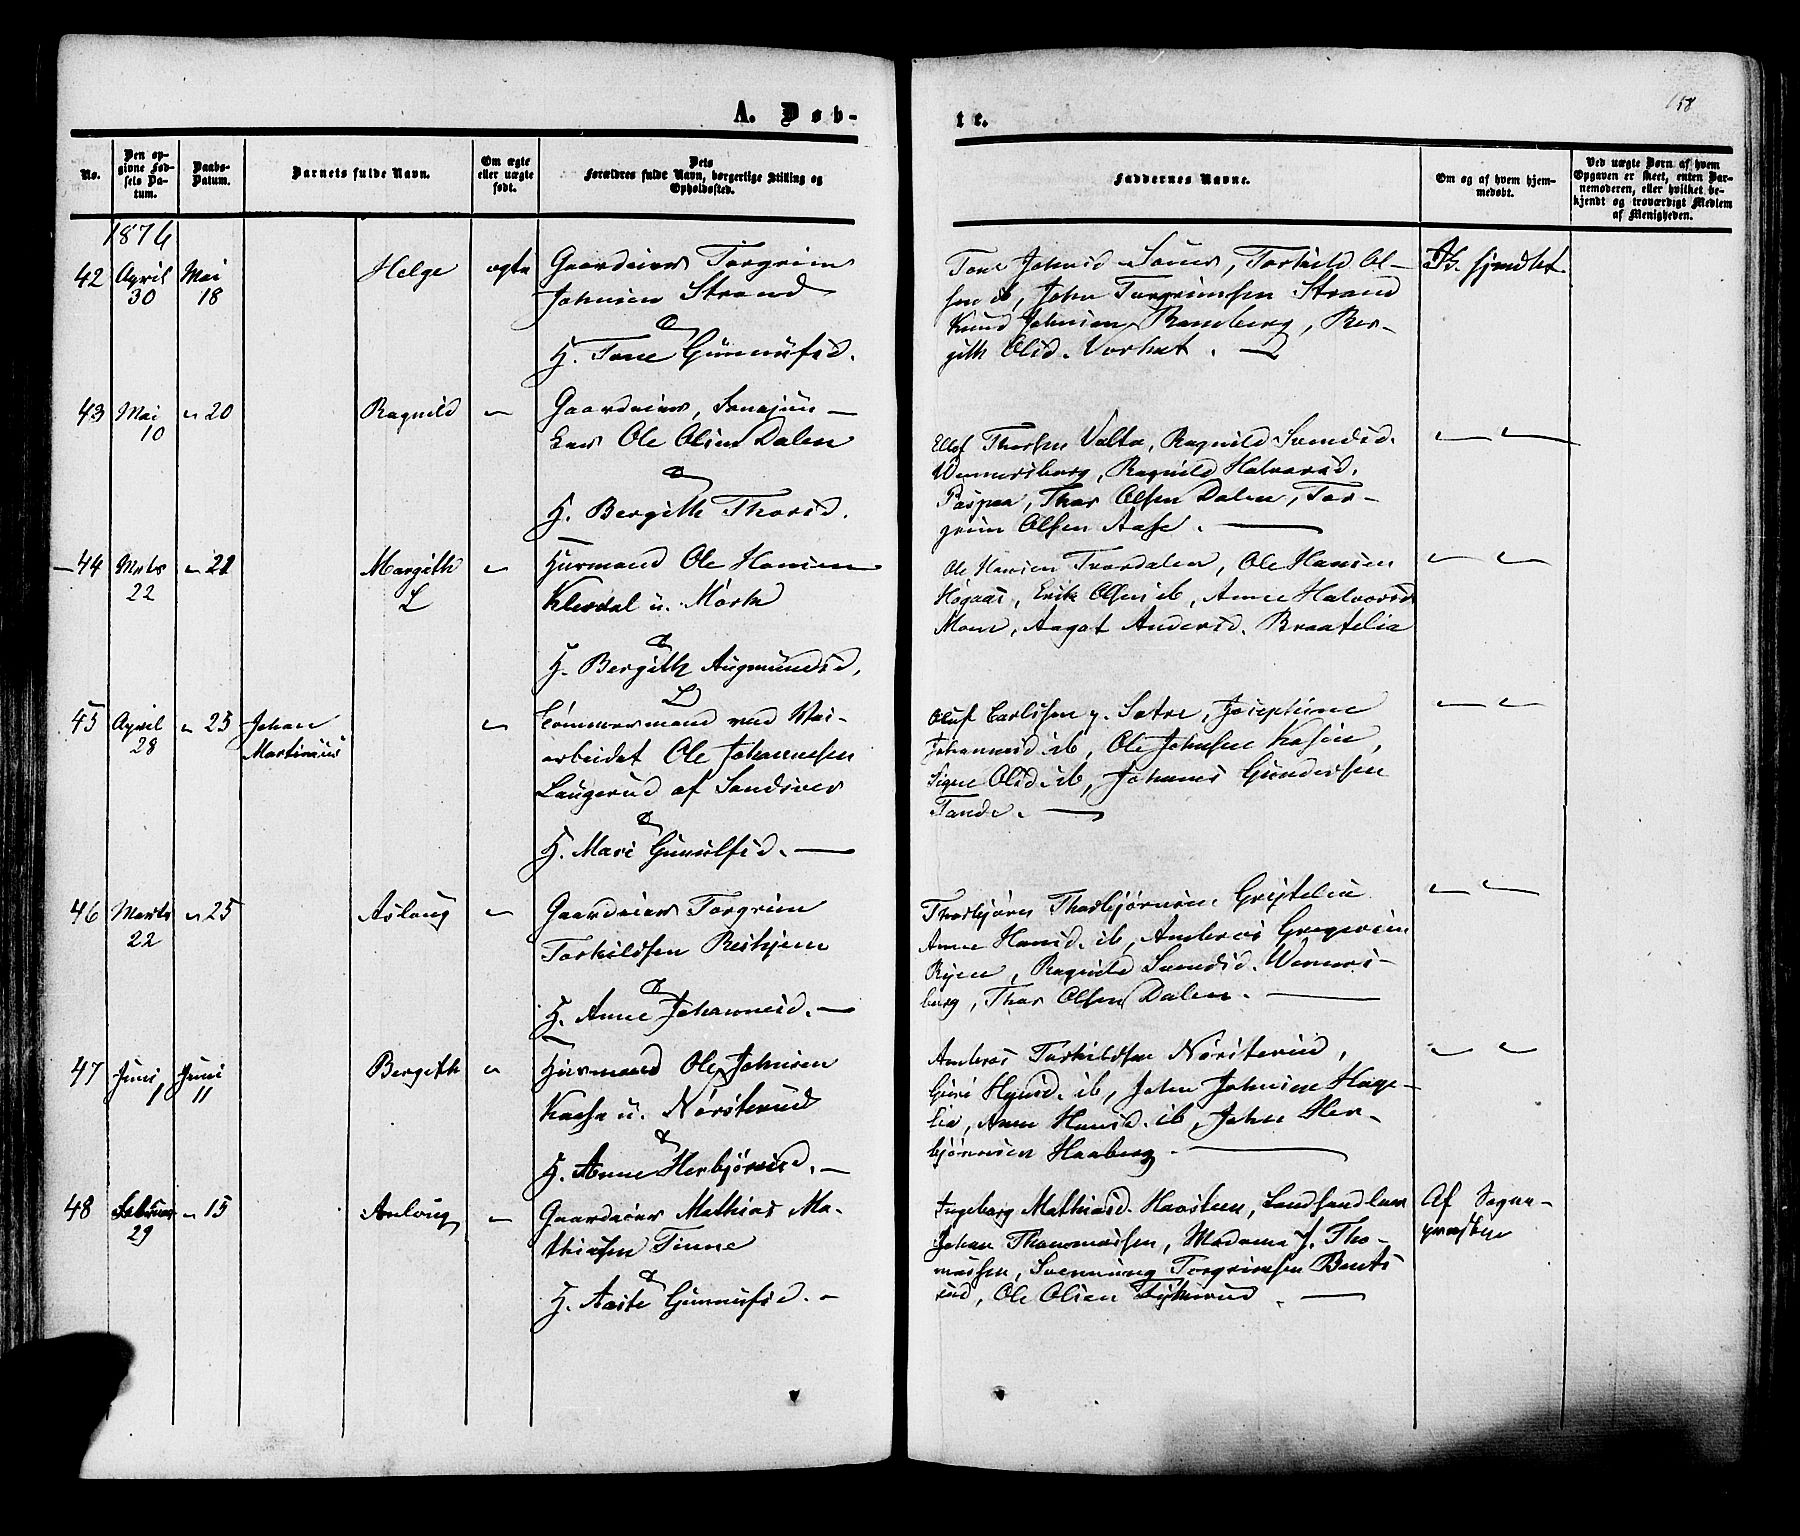 158
A. Døb-
te.
No.
Den op-
givne Fød-
sels Da-
tum.
Daabs-
Datum.
Barnets fulde Navn.
Om ægte
eller uægte
født.
Dets
Forældres fulde Navn, borgerlige Stilling og
Opholdssted.
Faddernes Navne.
Om og af hvem hjem-
medøbt.
Ved uægte Børn af hvem
Opgaven er skeet, enten Bar-
nemoderen, eller hvilket be-
kjendt og troværdigt Medlem
af Menigheden.
1876
42 April 30 Mai 18 Helge ægte
Gaardeier Torgrim
Johnsen Strand
&
H. Tone Gunnufsd.
Tone Johnsd. Torkild Ol-
sen ib, John Torgrimsen Strand
Knud Johnsen Ramberg, Ber-
gith Olsd.
hjmdbt
43 Mai 10 " 20 Ragnild "
Gaardeier,
Ole Olsen Dalen
&
H. Bergith Thorsd.
Ellef Thorsen Valta, Ragnild Svendsd.
Wennersberg, Ragnild Halvorsd.
Thor Olsen Dalen, Tor-
grim Olsen Aase. " "
44 Marts 22 " 21 Margith L "
Husmand Ole Hansen
u. Mork
&
H. Bergith Augmundsd.
Ole Hansen Trordalen, Ole Hansen
Høgaas, Erik Olsen ib, Anne Halvorsd.
Moen, Aagot Andersd. Braatelia " "
45 April 28 " 25 Johan
Martinius "
L
Tømmermand ved Vei-
arbeidet Ole Johannesen
Laugerud af Sandsver
&
H. Mari Gunulfsd.
Oluf Carlssen y. Sætre, Josephine
Johannesd. ib, Ole Johnsen Kasin,
Signe Olsd. ib, Johannes Gundersen
Tande. " "
46 Marts 22 " 25 Aslaug "
Gaardeier Torgrim
Torkildsen Reishjem
&
H. Anne Johannesd.
Thorbjørn Thorbjørnsen
Anne Hansd. ib, Anders Gregersen
Ryen, Ragnild Svendsd. Wenners-
berg, Thor Olsen Dalen. " "
47 Juni 1 Juni 11 Bergith "
Husmand Ole Johnsen
Kaasa u. Nørsterud
&
H. Anne Herbjørnsd.
Anders Torkildsen Nørsterud,
Guri ib, John Johnsen Hage-
lia, Anne Hansd. ib, John Her-
bjørnsen Haaberg " "
48 Februar 29 " 15 Anlaug "
Gaardeier Mathias Ma-
thiasen Tinne
&
H. Aaste Gunnufsd.
Ingeborg Mathiasd. Haasteen, Landhandler
Johan Thommassen, Madame J. Tho-
massen, Svennung Torgrimsen Bents
rud, Ole Olsen
Af Sogne-
præsten